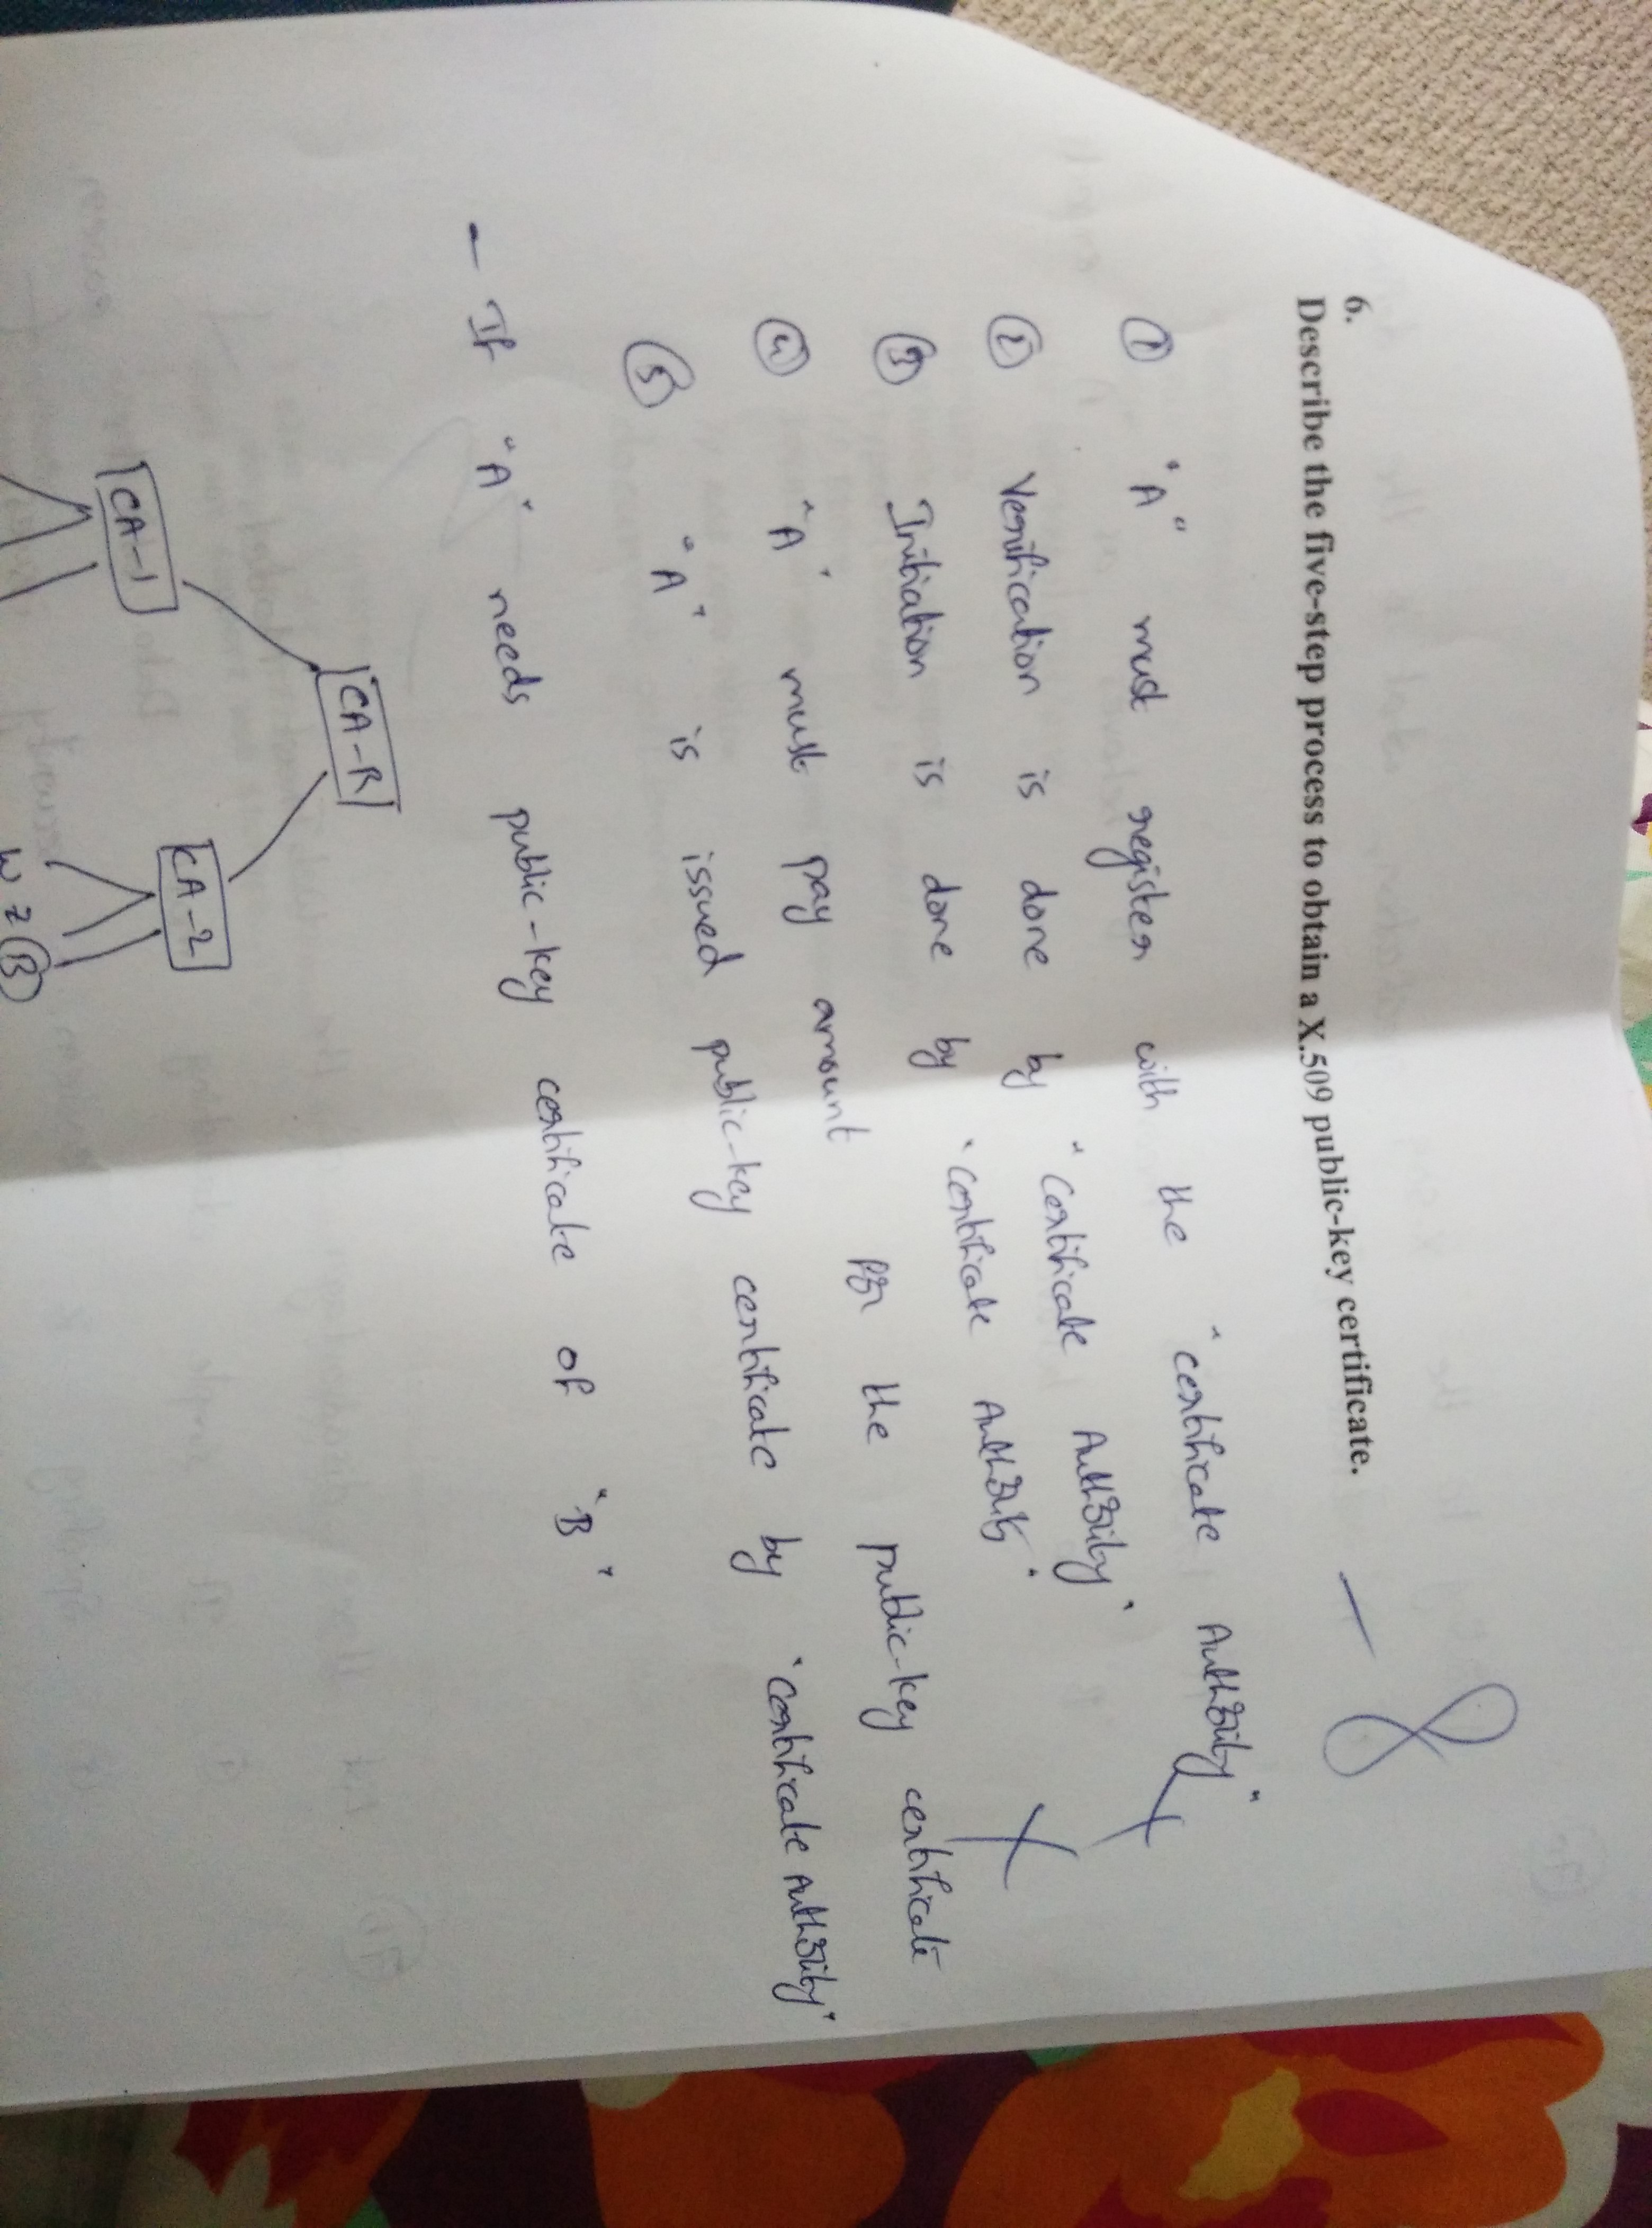 6.
Describe the five-step process to obtain a X.509 public-key certificate. — 8
① "A" must register with the "certificate Authority"
② Verification is done by "Certificate Authority"
③ Initiation is done by "certificate Authority"
④ "A" must pay amount for the public-key certificate
⑤ "A" is issued public-key certificate by "certificate Authority"
– If "A" needs public-key certificate of "B"
CA-R
CA-1 CA-2
W Z B